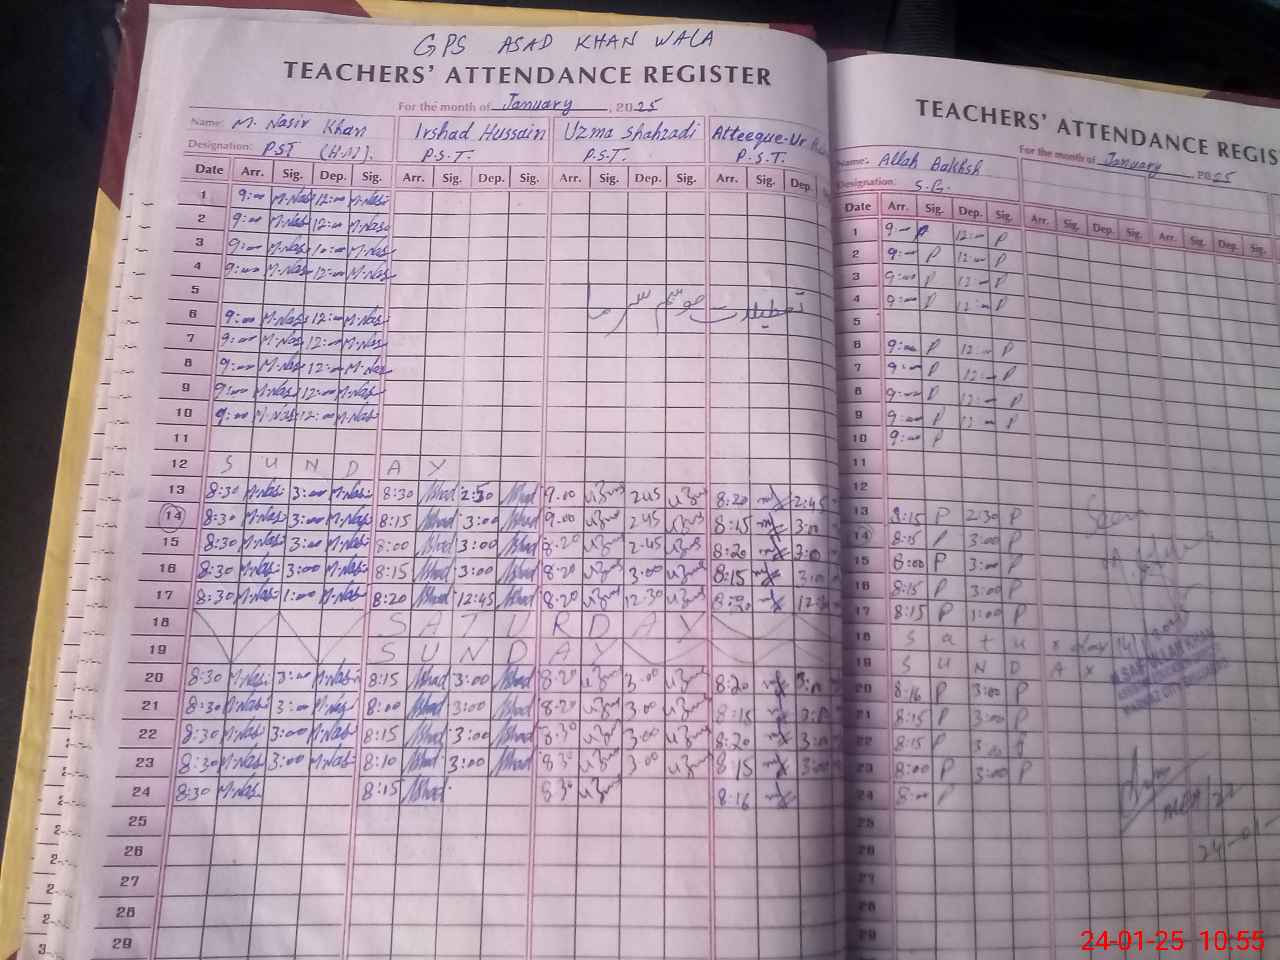 GPS ASAD KHAN WALA
TEACHERS' ATTENDANCE REGISTER
For the month of January, 2025
Name: M. Nasir Khan Irshad Hussain Uzma Shahzadi Atteeque-Ur
Designation: PST (H.M). P.S.T. P.S.T. P.S.T.
Date Arr. Sig. Dep. Sig. Arr. Sig. Dep. Sig. Arr. Sig. Dep. Sig. Arr. Sig. Dep.
1 9:00 M.Nas 12:00 M.Nas
2 9:00 M.Nas 12:00 M.Nas
3 9:00 M.Nas 12:00 M.Nas
4 9:00 M.Nas 12:00 M.Nas
5
6 9:00 M.Nas 12:00 M.Nas
7 9:00 M.Nas 12:00 M.Nas
8 9:00 M.Nas 12:00 M.Nas
9 9:00 M.Nas 12:00 M.Nas
10 9:00 M.Nas 12:00 M.Nas
11
12 SUNDAY
13 8:30 M.Nas 3:00 M.Nas 8:30 Irshad 2:30 Irshad 9.00 عظمیٰ 2:45 عظمیٰ 8:20 2:45
14 8:30 M.Nas 3:00 M.Nas 8:15 Irshad 3:00 Irshad 9.00 عظمیٰ 2:45 عظمیٰ 8:15 3:00
15 8:30 M.Nas 3:00 M.Nas 8:00 Irshad 3:00 Irshad 8:20 عظمیٰ 2:45 عظمیٰ 8:20 3:00
16 8:30 M.Nas 3:00 M.Nas 8:15 Irshad 3:00 Irshad 8:20 عظمیٰ 3:00 عظمیٰ 8:15 3:00
17 8:30 M.Nas 1:00 M.Nas 8:20 Irshad 12:45 Irshad 8:20 عظمیٰ 12:30 عظمیٰ
18 SATURDAY
19 SUNDAY
20 8:30 M.Nas 3:00 M.Nas 8:15 Irshad 3:00 Irshad 8:20 عظمیٰ 3:00 عظمیٰ 8:20 3:00
21 8:30 M.Nas 3:00 M.Nas 8:00 Irshad 3:00 Irshad 8:20 عظمیٰ 3:00 عظمیٰ 8:15 3:00
22 8:30 M.Nas 3:00 M.Nas 8:15 Irshad 3:00 Irshad 8:30 عظمیٰ 3:00 عظمیٰ 8:20 3:00
23 8:30 M.Nas 3:00 M.Nas 8:10 Irshad 3:00 Irshad 8:30 عظمیٰ 3:00 عظمیٰ 8:15 3:00
24 8:30 M.Nas 8:15 Irshad 8:30 عظمیٰ 8:16
25
26
27
28
29
تعطیلات موسم سرما
TEACHERS' ATTENDANCE REGIS
For the month of January, 2025
Name: Allah Bakhsh
Designation: S.G.
Date Arr. Sig. Dep. Sig. Arr. Sig. Dep. Sig. Arr. Sig. Dep. Sig.
1 9:00 P 12:00 P
2 9:00 P 12:00 P
3 9:00 P 12:00 P
4 9:00 P 12:00 P
5
6 9:00 P 12:00 P
7 9:00 P 12:00 P
8 9:00 P 12:00 P
9 9:00 P 12:00 P
10 9:00 P
11
12
13 8:15 P 2:30 P
14 8:15 P 3:00 P
15 8:00 P 3:00 P
16 8:15 P 3:00 P
17 8:15 P 1:00 P
18 Satu
19 SUNDAY
20 8:16 P 3:00 P
21 8:15 P 3:00 P
22 8:15 P 3:00 P
23 8:00 P 3:00 P
24 8:00 P
25
26
27
28
29
Seen
24-01-
24-01-25 10:55